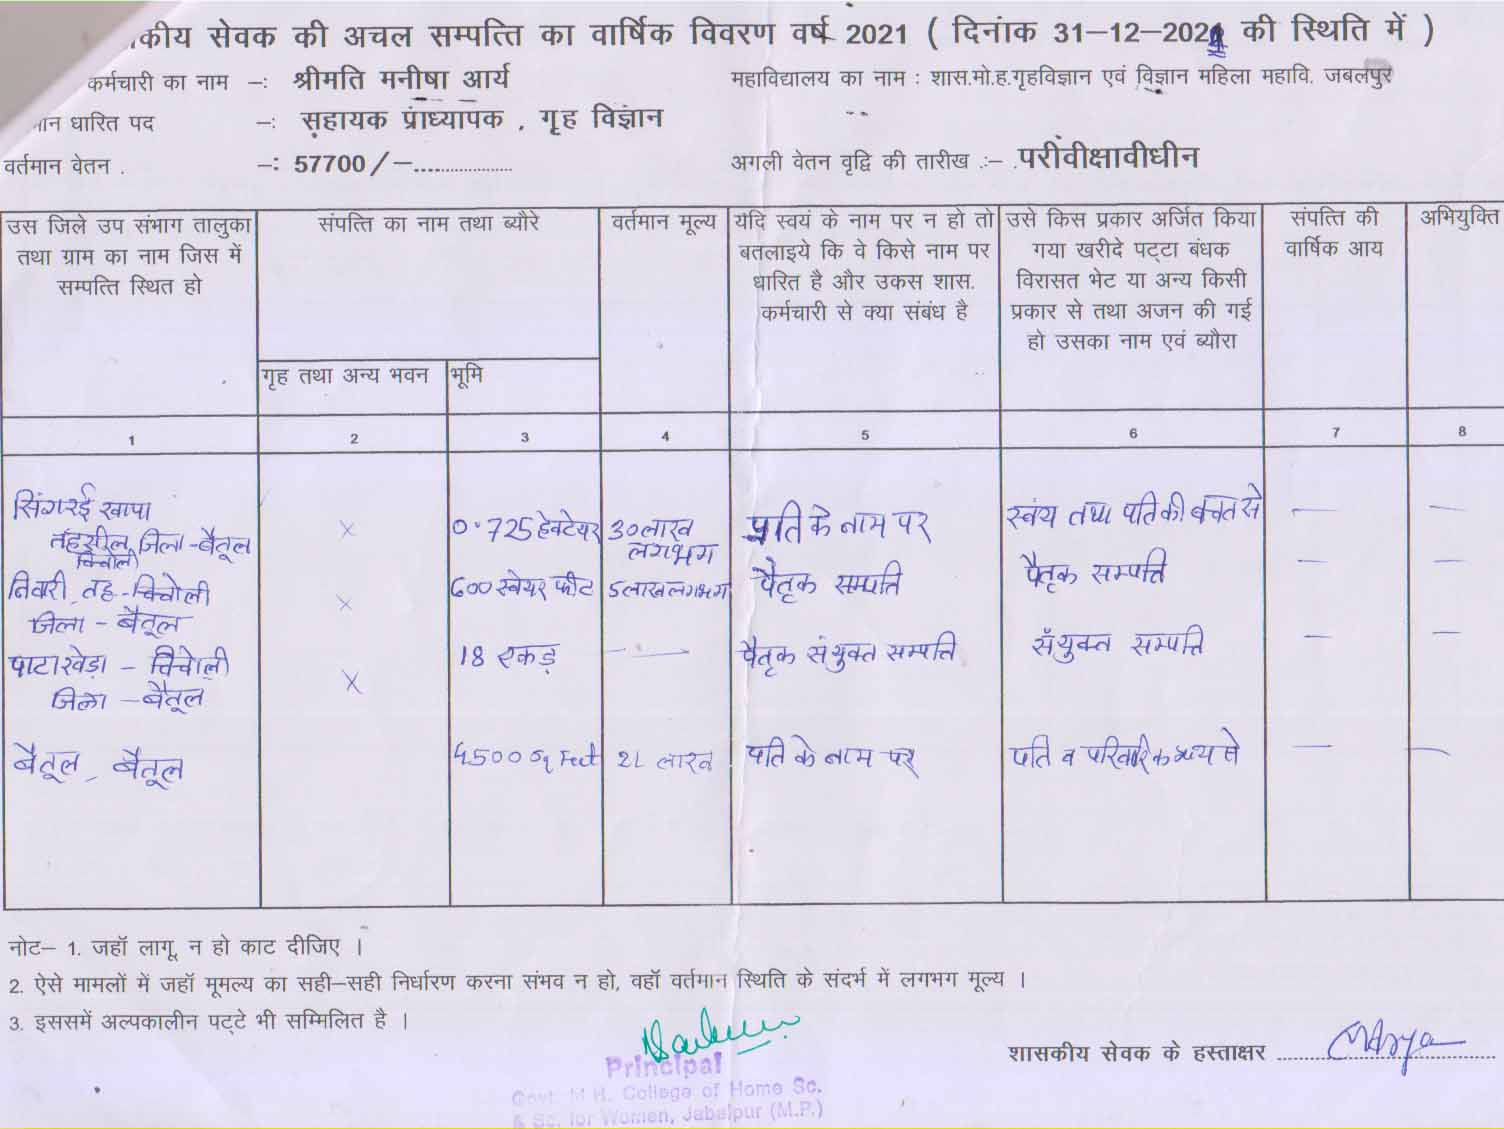 कीय सेवक की अचल सम्पत्ति का वार्षिक विवरण वर्ष 2021 ( दिनांक 31–12–2021 की स्थिति में )
कर्मचारी का नाम –: श्रीमति मनीषा आर्य महाविद्यालय का नाम : शास.मो.ह.गृहविज्ञान एवं विज्ञान महिला महावि. जबलपुर
मान धारित पद –: सहायक प्राध्यापक , गृह विज्ञान
वर्तमान वेतन . –: 57700/–.................. अगली वेतन वृद्धि की तारीख :– .परीवीक्षावीधीन
उस जिले उप संभाग तालुका तथा ग्राम का नाम जिस में सम्पत्ति स्थित हो
संपत्ति का नाम तथा ब्यौरे
वर्तमान मूल्य
यदि स्वयं के नाम पर न हो तो बतलाइये कि वे किसे नाम पर धारित है और उकस शास. कर्मचारी से क्या संबंध है
उसे किस प्रकार अर्जित किया गया खरीदे पट्टा बंधक विरासत भेट या अन्य किसी प्रकार से तथा अजन की गई हो उसका नाम एवं ब्यौरा
संपत्ति की वार्षिक आय
अभियुक्ति
गृह तथा अन्य भवन भूमि
1 2 3 4 5 6 7 8
सिंगरई खापा तहसील चिचोली जिला - बैतूल × 0.725 हेक्टेयर 30 लाख लगभग पति के नाम पर स्वंय तथा पति की बचत से — —
निवारी, तह - चिचोली जिला - बैतूल × 600 स्केयर फीट 5 लाख लगभग पैतृक सम्पति पैतृक सम्पति — —
पाटाखेड़ा - चिचोली जिला - बैतूल × 18 एकड़ — पैतृक संयुक्त सम्पति सँयुक्त सम्पति — —
बैतूल, बैतूल 4500 Sq Feet 21 लाख पति के नाम पर पति व परिवार के से — —
नोट– 1. जहॉ लागू, न हो काट दीजिए ।
2. ऐसे मामलों में जहॉ मूमल्य का सही–सही निर्धारण करना संभव न हो, वहॉ वर्तमान स्थिति के संदर्भ में लगभग मूल्य ।
3. इससमें अल्पकालीन पट्टे भी सम्मिलित है ।
शासकीय सेवक के हस्ताक्षर .................. MArya
Principal
Govt. M.H. College of Home Sc.
& Sc. for Women, Jabalpur (M.P.)